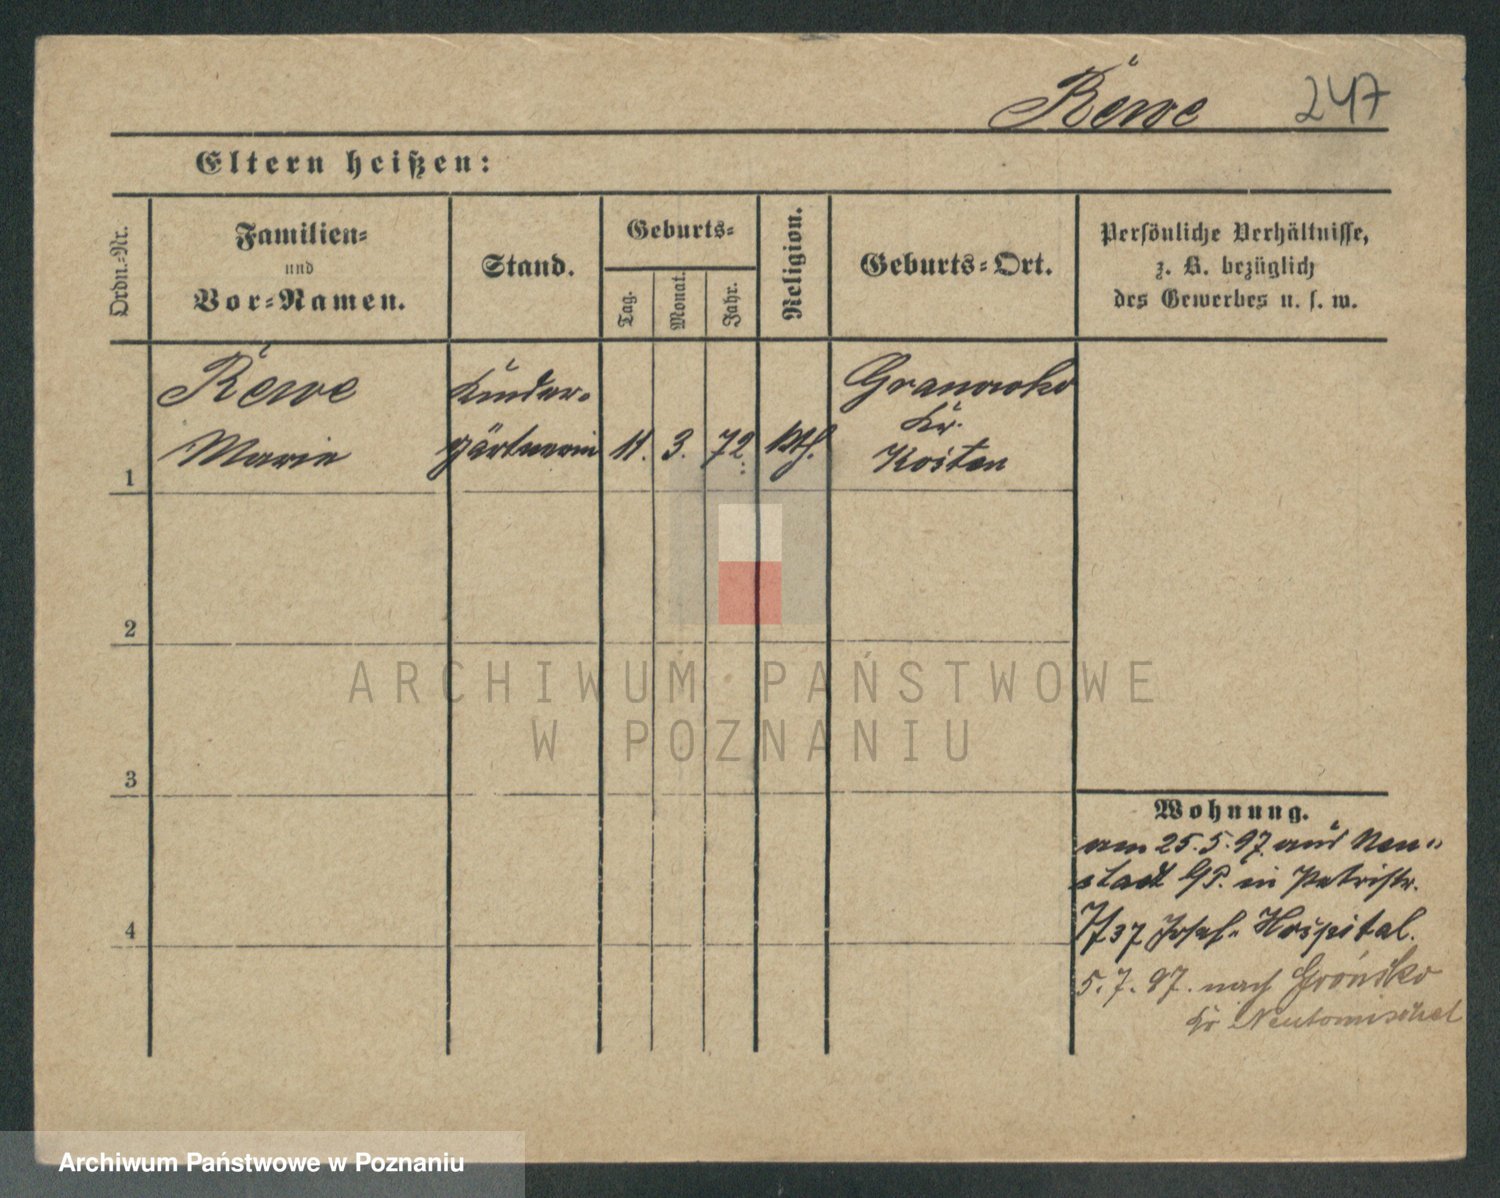 Rewe 247
Eltern heißen:
Ordn.-Nr.
Familien-
und
Vor-Namen.
Stand.
Geburts-
Tag.
Monat.
Jahr.
Religion.
Geburts-Ort.
Persönliche Verhältnisse,
z. B. bezüglich
des Gewerbes u. s. w.
1
Rewe
Marie
Kinder-
gärtnerin
11. 3. 72
kth.
Granowko
Kr.
Kosten
2
3
4
Wohnung.
am 25.5.97 aus Neu-
stadt in Petristr.
Josef-Hospital.
5.7.97. nach Gronsko
Kr Neutomischel
ARCHIWUM PAŃSTWOWE
W POZNANIU
Archiwum Państwowe w Poznaniu